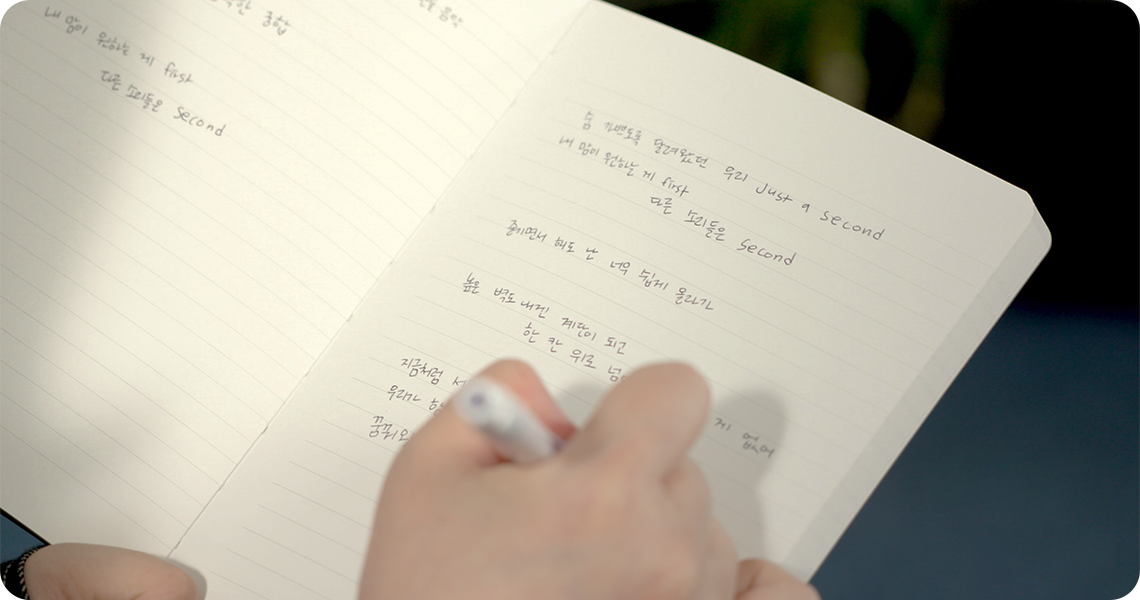 내 맘이 원하는 게 first
다른 소리들은 second
숨 가쁘도록 달려왔던 우리 Just a second
내 맘이 원하는 게 first
다른 소리들은 second
즐기면서 해도 난 너무 쉽게 올라가
높은 벽도 내겐 계단이 되고
한 칸 위로
지금처럼
우리가
게 없어